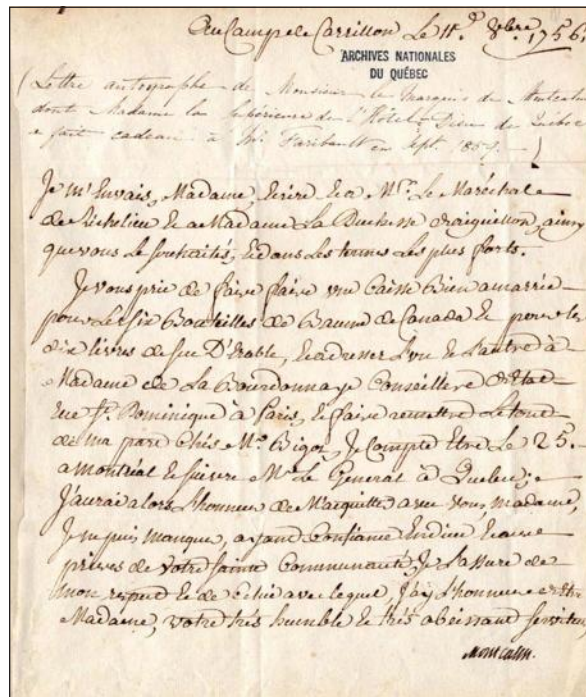 Au Camp de Carrillon Le 11e 8bre. 1756.
ARCHIVES NATIONALES
DU QUÉBEC
(Lettre autographe de Monsieur le Marquis de Montcalm
dont Madame la Supérieure de l'Hôtel-Dieu de Québec
a fait cadeau à Mr. Faribault en Sept.
Je m'Envais, Madame, Ecrire Et a Mr. Le Maréchal
de Richelieu Et a Madame La Duchesse d'aiguillon, ainsy
que vous Le souhaités, Et dans Les termes Les plus forts.
Je vous prie de faire faire une Caisse Bien amarrée
pour Les six Bouteilles de Baume de Canada Et pour les
dix livres de suc D'Erable, Et adresser L'un Et L'autre à
Madame de La Bourdonnaye Conseillere d'Etat
rue St. Dominique à Paris, Et faire remettre Le tout
de ma part chés Mr. Bigot, Je Compte Etre Le 25.
a Montréal Et suivre Mr. Le General à Quebec;
J'aurai alors L'honneur de M'acquitter avec vous, madame,
Je ne puis manquer, ayant Confiance En dieu Et aux
prieres de votre sainte Communauté, Je L'assure de
mon respect Et de Celui avec lequel, J'ay L'honneur d'Etre
Madame, votre très humble Et très obeissant serviteur
Montcalm.